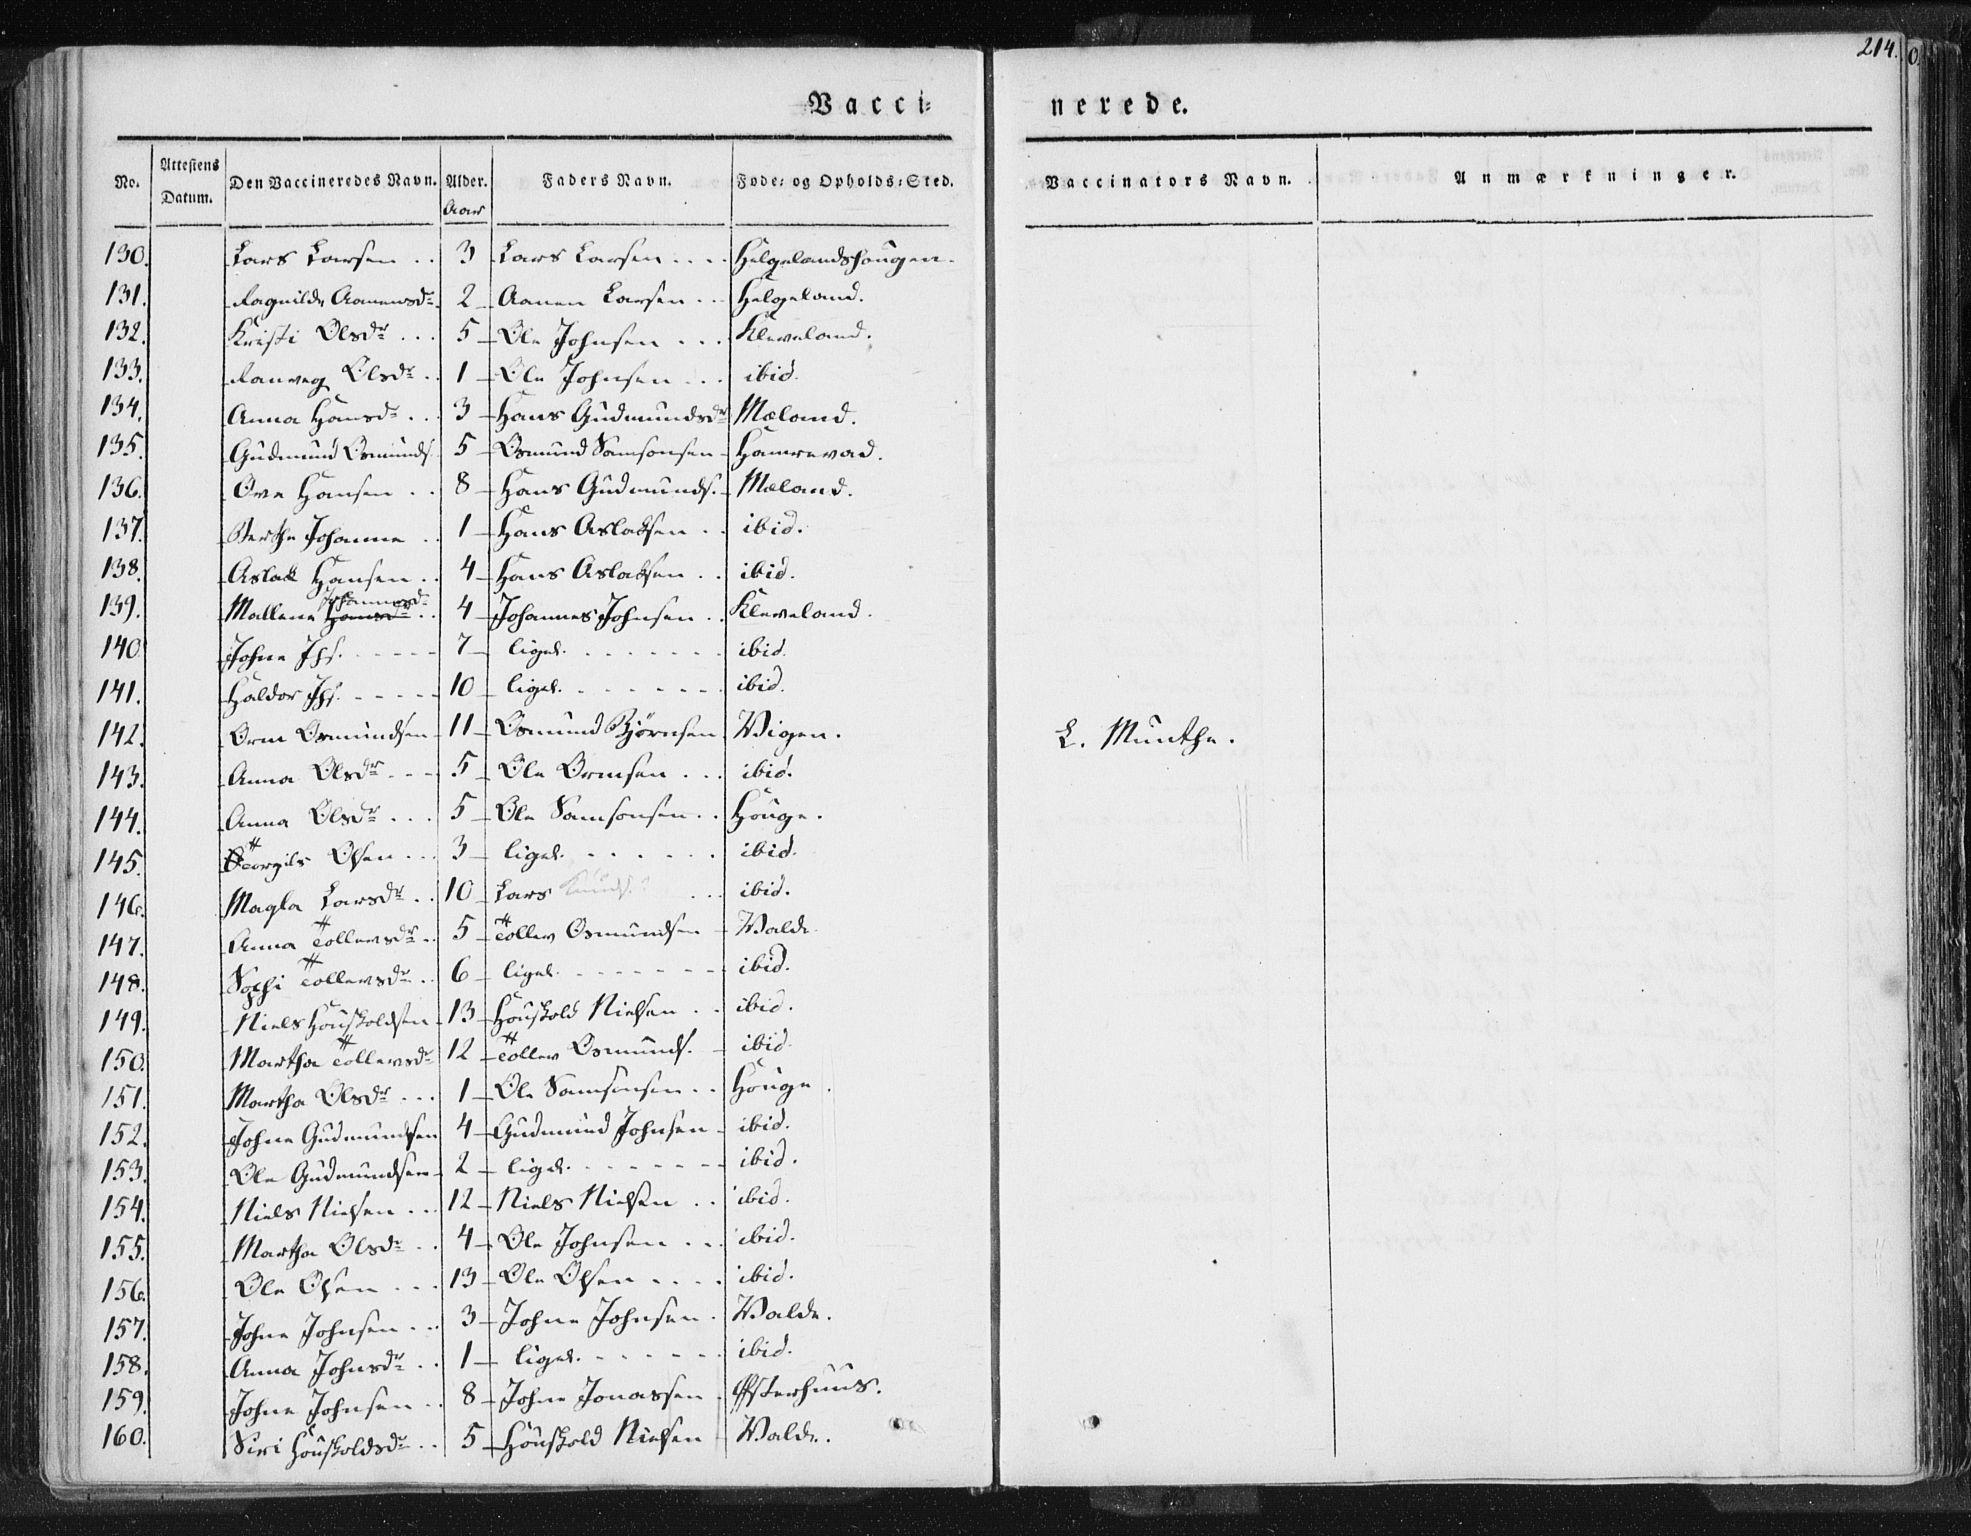 214.
Vacci-
nerede.
No. Attestens Datum. Den Vaccineredes Navn. Alder. Aar Faders Navn. Føde- og Opholds-Sted. Vaccinators Navn. Anmærkninger.
130. Lars Larsen . . 3 Lars Larsen . . . . Helgelandshougen.
131. Ragnilde Aanensdr 2 Aanen Larsen . . . Helgeland.
132. Kristi Olsdr . . . 5 Ole Johnsen . . . Kleveland.
133. Ranveg Olsdr . . 1 Ole Johnsen . . . ibid.
134. Anna Hansdr . . . 3 Hans Gudmundsdr Mæland.
135. Gudmund Osmunds. 5 Osmund Samsonsen Hamrevad.
136. Ove Hansen . . 8 Hans Gudmunds. Mæland.
137. Berthe Johanne . . 1 Hans Aslaksen . . ibid.
138. Aslak Hansen . . 4 Hans Aslaksen . . ibid.
139. Mallene Hansdr Johannesdr . . 4 Johannes Johnsen . . Kleveland.
140. Johne Jhs. - - - - - 7 liges. . . . . . . . ibid.
141. Haldor Jhs. - - - - - 10 liges. . . . . . . . ibid.
142. Orm Osmundsen 11 Osmund Bjørnsen Wigen. L. Munthe.
143. Anna Olsdr - - - 5 Ole Ormsen . . . ibid.
144. Anna Olsdr . . . 5 Ole Samsonsen . . Houge.
145. Torgils Olsen . . . 3 liges. . . . . . . ibid.
146. Magla Larsdr . . 10 Lars Knuds.? . . . ibid.
147. Anna Tollevsdr . . 5 Tollev Osmundsen Walde.
148. Sophi Tollevsdr . . 6 liges. - - - - - - - ibid.
149. Niels Houskoldsen 13 Houskold Nielsen . . ibid.
150. Martha Tollevsdr 12 Tollev Osmunds. ibid.
151. Martha Olsdr . . . 1 Ole Samsonsen . . Houge.
152. Johne Gudmundsen 4 Gudmund Johnsen ibid.
153. Ole Gudmundsen 2 liges. - - - - - - - ibid.
154. Niels Nielsen . . . 12 Niels Nielsen . . ibid.
155. Martha Olsdr . . 4 Ole Johnsen . . . ibid.
156. Ole Olsen . . . 13 Ole Olsen . . . . ibid.
157. Johne Johnsen . . . 3 Johne Johnsen . Walde.
158. Anna Johnsdr . . 1 liges. - - - - - - ibid.
159. Johne Johnsen . . 8 Johne Jonassen . Østerhuus.
160. Siri Houskoldsdr . . 5 Houskold Nielsen Walde.